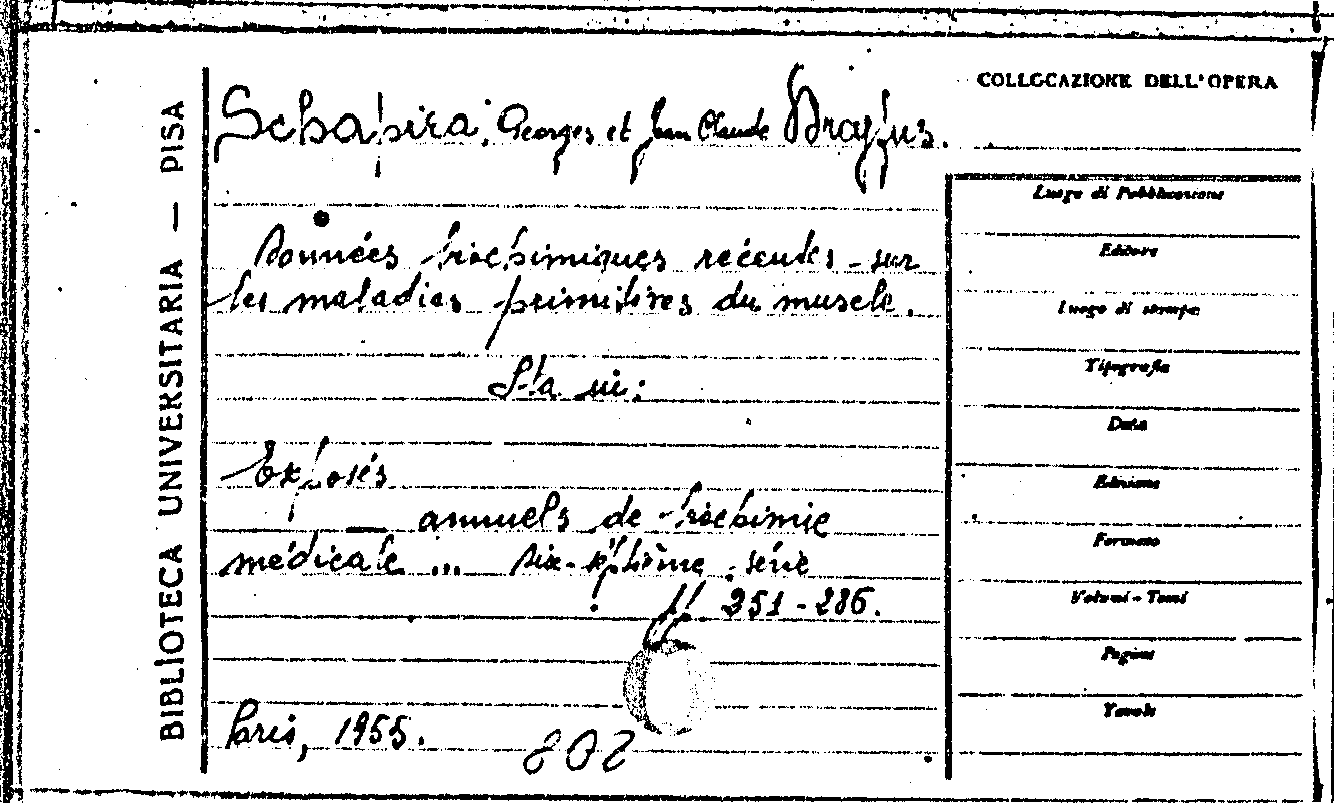 BIBLIOTECA UNIVERSITARIA — PISA
COLLOCAZIONE DELL'OPERA
Schapira, Georges et Jean Claude Dreyfus.
Données biochimiques récentes sur
les maladies primitives du muscle.
Sta in:
Exposés
— annuels de biochimie
médicale ... dix-septième série
pp 251-286.
Paris, 1955.
Luogo di Pubblicazione
Editore
Luogo di stampa
Tipografia
Data
Edizione
Formato
Volumi - Tomi
Pagine
Tavole